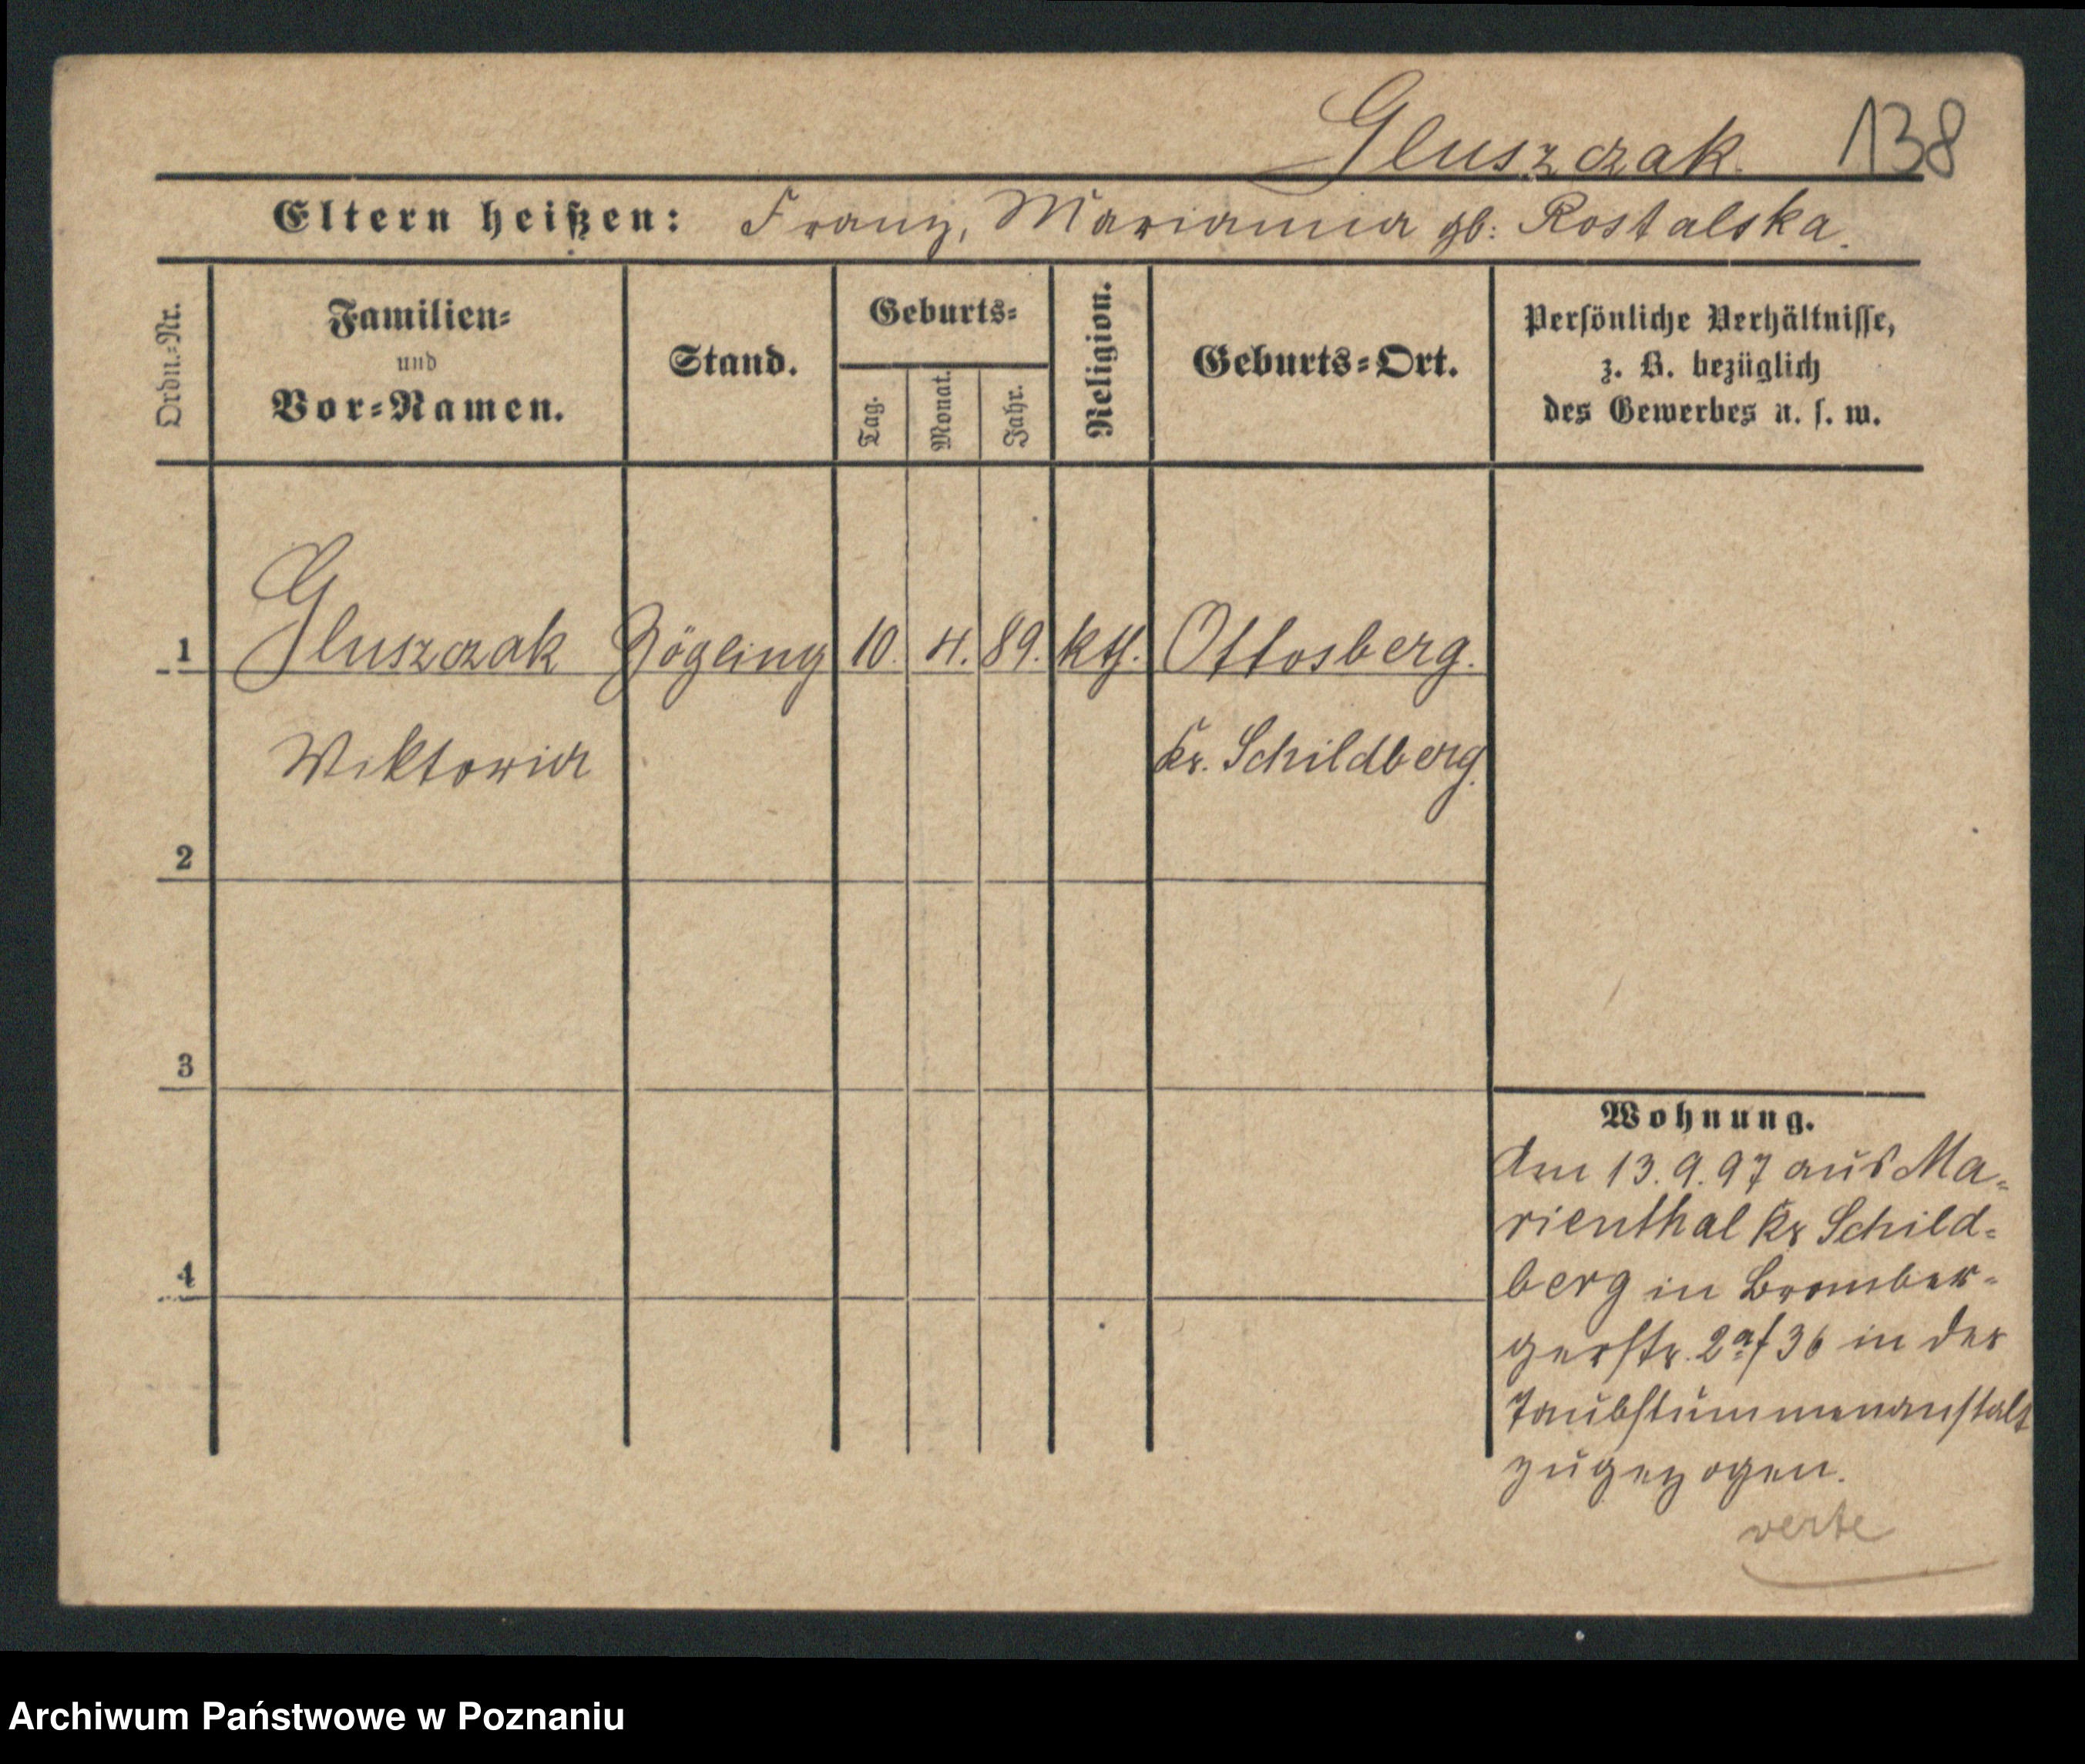 Gluszczak. 138
Eltern heißen: Franz, Marianna gb: Rostalska.
Ordn.=Nr.
Familien=
und
Vor=Namen.
Stand.
Geburts=
Tag.
Monat.
Jahr.
Religion.
Geburts=Ort.
Persönliche Verhältnisse,
z. B. bezüglich
des Gewerbes u. s. w.
1 Gluszczak Zögling 10. 4. 89. kth. Ottosberg.
Wiktoria Kr. Schildberg.
2
3
4
Wohnung.
Am 13.9.97 aus Ma=
rienthal Kr Schild=
berg in Bromber=
gerstr. 2a/36 in der
Taubstummenanstalt
zugezogen.
verte
Archiwum Państwowe w Poznaniu